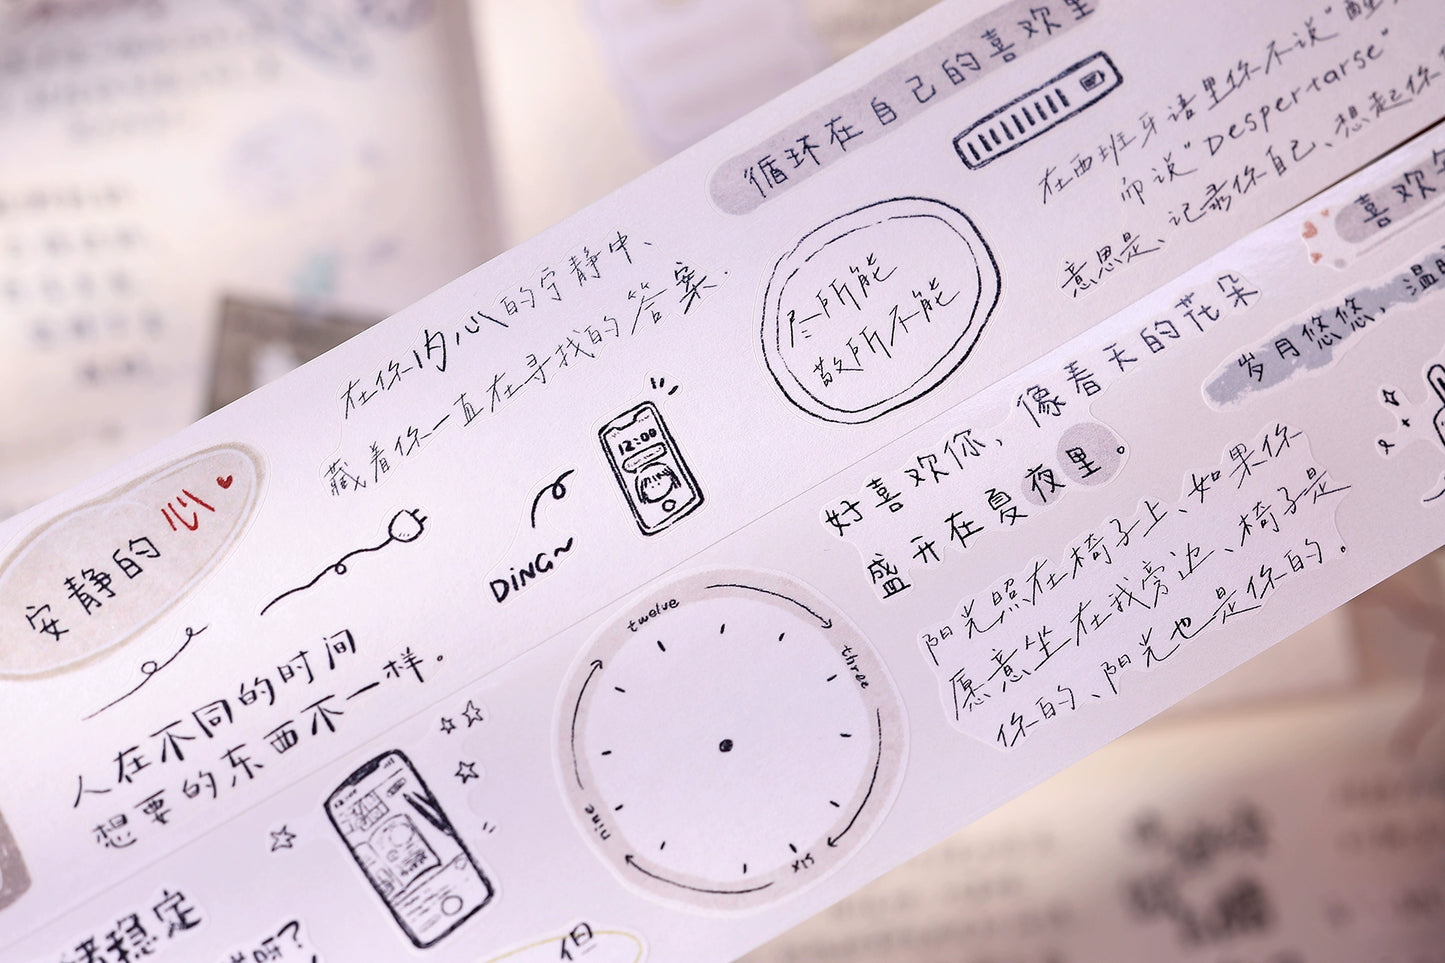 循环在自己的喜欢里
在西班牙语里你不说"醒
而说"Despertarse"
意思是、记录你自己、想起你
在你内心的宁静中、
藏着你一直在寻找的答案.
尽所能
敬所不能
安静的心
12:00
DING~
人在不同的时间
想要的东西不一样。
喜欢
岁月悠悠，温
好喜欢你，像春天的花朵
盛开在夏夜里。
阳光照在椅子上、如果你
愿意坐在我旁边、椅子是
你的、阳光也是你的.
twelve
three
six
nine
绪稳定
呀?
但